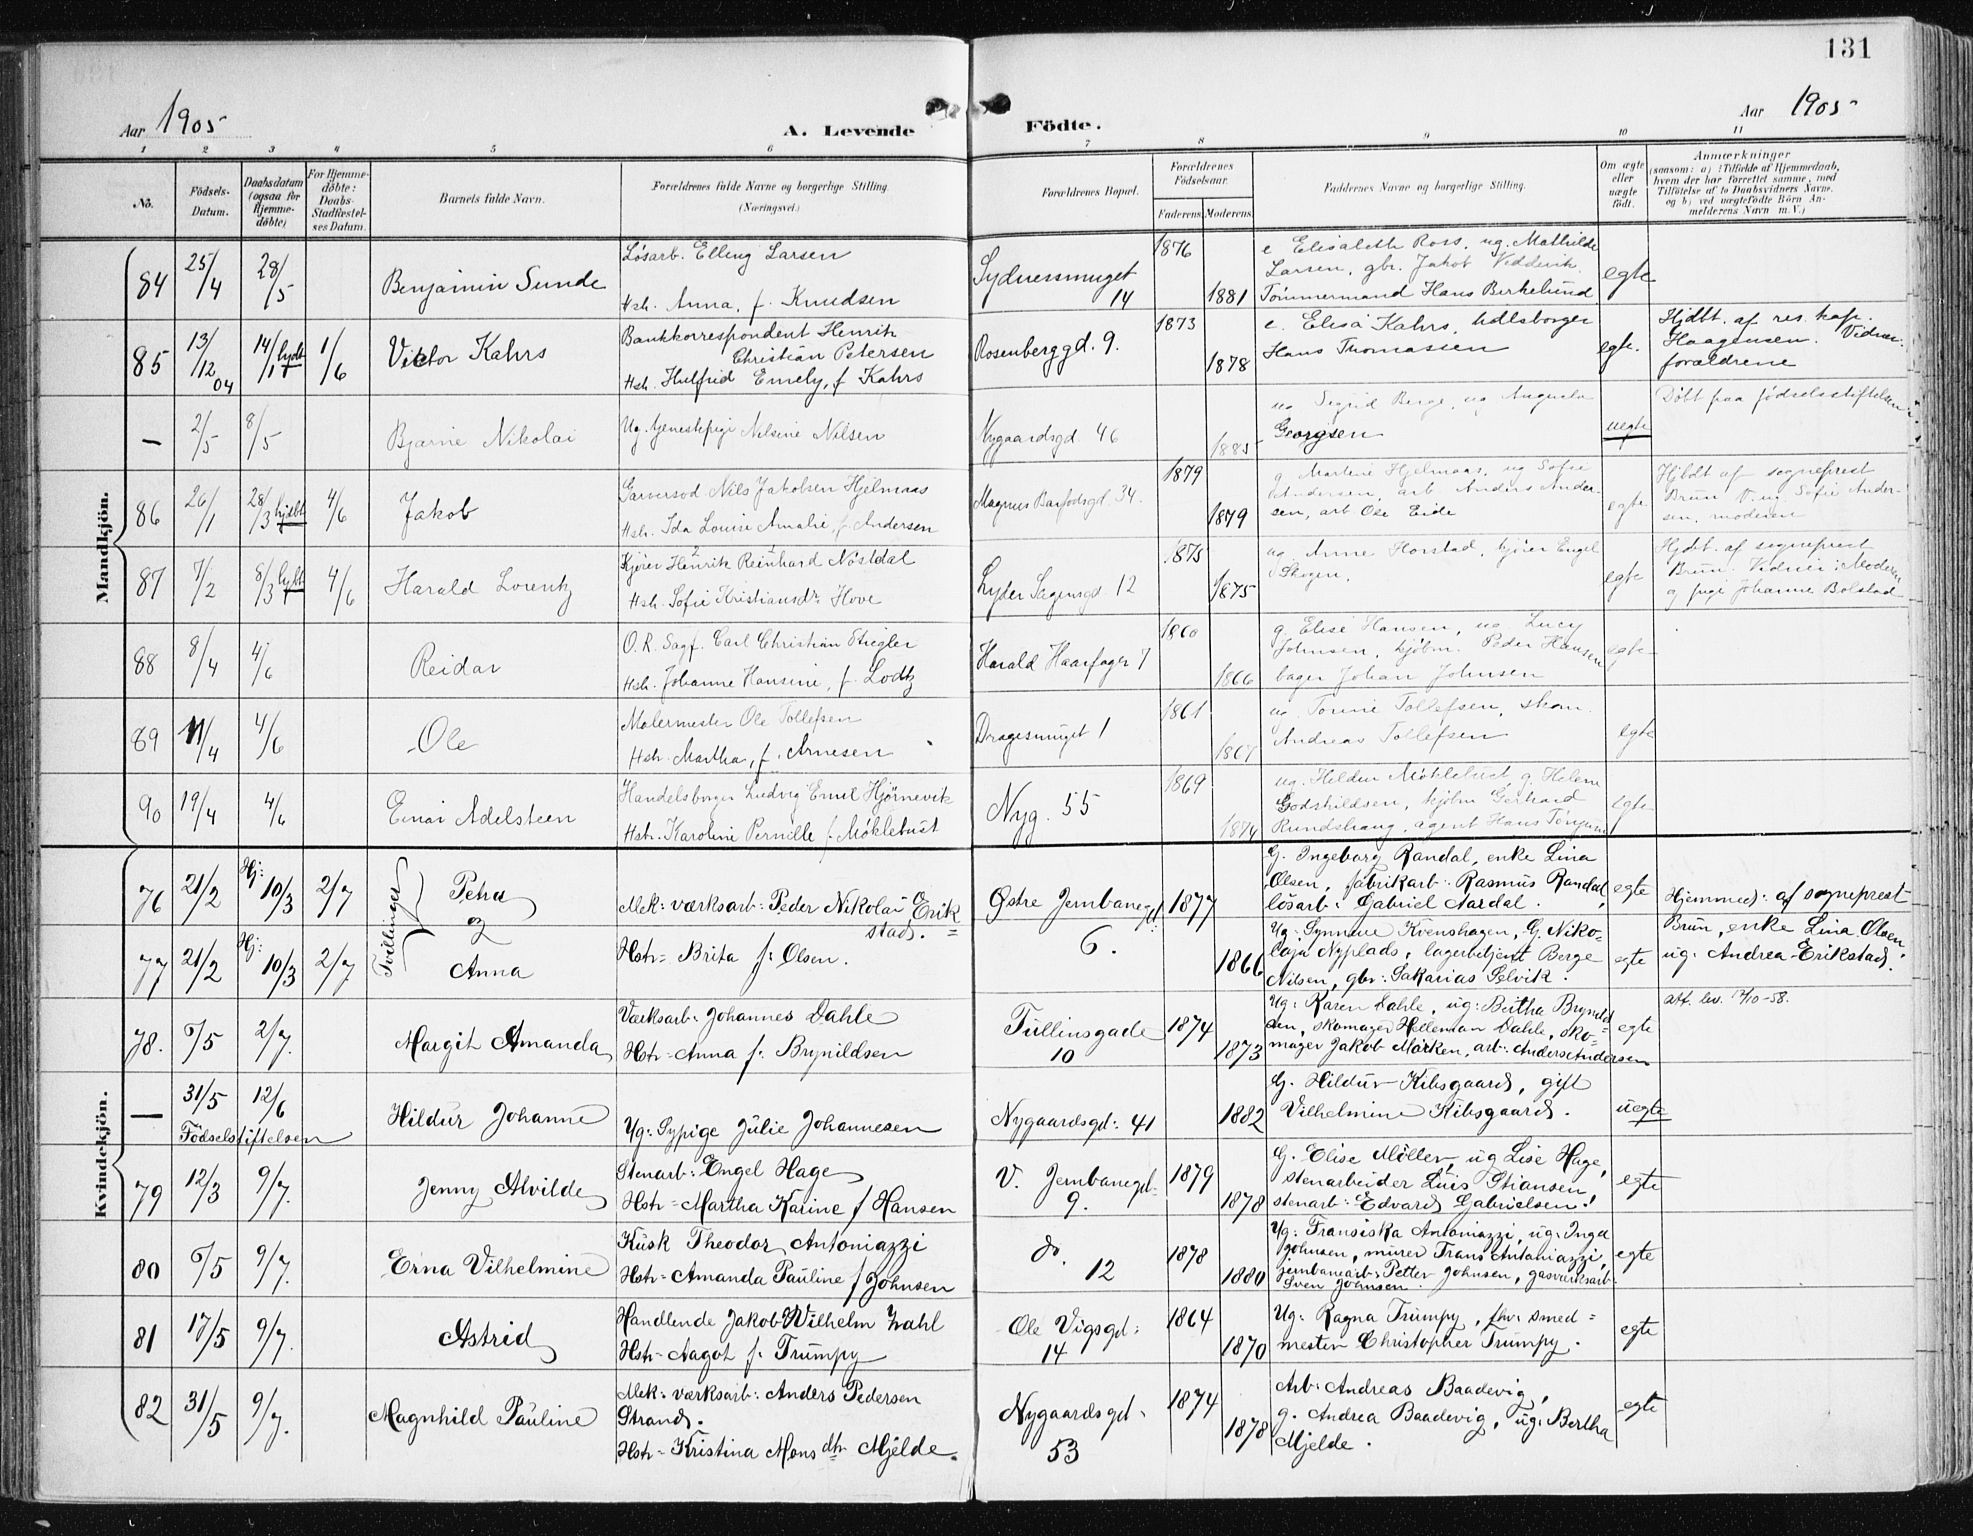 131
Aar 1905 A. Levende Födte. Aar 1905
1 2 3 4 5 6 7 8 9 10 11
No. Födsels-Datum. Daabsdatum (ogsaa for Hjemme-döbte) For Hjemme-döbte: Daabs-Stadfæstel-ses Datum. Barnets fulde Navn. Forældrenes fulde Navne og borgerlige Stilling. (Næringsvei.) Forældrenes Bopæl. Forældrenes Födselsaar. Faderens Moderens Faddernes Navne og borgerlige Stilling. Om ægte eller uægte födt. Anmærkninger
(saasom: a) i Tilfælde af Hjemmedaab, hvem der har forrettet samme, med Tilföielse af to Daabsvidners Navne. og b) ved uægtefödte Börn An-melderens Navn m. V.)
Mandkjön.
84 25/4 28/5 Benjamin Sunde
Løsarb. Elling Larsen
Hstr. Anna, f. Knudsen
Sydnessmuget 14
1876 1881
e Elisabeth Ross, ug. Mathilde
Larsen, gbr. Jakob
Tömmermand Hans Birkelund
egte
85 13/12 04 14/1 hjdbt 1/6 Victor Kahrs
Bankkorrespondent Henrik
Christian Petersen
Hstr. Hulfrid Emely, f Kahrs
Rosenberggd. 9.
1873 1878
e. Elisa Kahrs, hdlsborger
Hans Thomassen
egte.
Hjdbt. af res. kap.
Haagensen. Vidner:
forældrene
— 2/5 8/5 Bjarne Nikolai
Ug. tjenestepige Nilsine Nilsen
Nygaardsgd. 46
1885
ug Sigrid Berge, ug Augusta
Georgsen
uegte
Döbt paa födselsstiftelsen
86 26/1 28/3 hjdbt 4/6 Jakob
Garversvd Nils Jakobsen Hjelmaas
Hstr. Ida Louise Amalie, f. Andersen
Magnus Barfodsgd. 34.
1879 1879
g. Martine Hjelmaas, ug Sofie
Andersen, arb Anders Ander-
sen, arb Ole Eide
egte
Hjbdt af sogneprest
Brun V. ug. Sofie Ander-
sen, moderen
87 7/2 8/3 hjdbt 4/6 Harald Lorentz
Kjører Henrik Reinhard Nöstdal
Hstr. Sofie Kristiansdr. Hove
Lyder Sagensgd 12
1875 1875
ug. Anne Horstad, kjörer Engel
Skogen.
egte
Hjdbt. af sogneprest
Brun. Vidner: Moderen
g pige Johanne Bolstad
88 8/4 4/6 Reidar
O. R. Sagf. Carl Christian Stiegler
Hstr. Johanne Hansine, f. Lodtz
Harald Haarfager 7
1860 1866
g. Elise Hansen, ug. Lucy
Johnsen, kjöbm. Peder Hansen
bager Johan Johnsen
egte
89 11/4 4/6 Ole
Malermester Ole Tollefsen
Hstr. Martha, f. Arnesen
Dragesmuget 1
1861 1867
ug. Torine Tollefsen, skom.
Andreas Tollefsen
egte
90 19/4 4/6 Einar Adelsteen
Handelsborger Ludvig Emil Hjörnevik
Hstr. Karoline Pernille f. Möklebust
Nyg. 55
1869 1874
ug. Hilda Möklebust g. Helene
Godskildsen, kjöbm Gerhard
Rundshaug, agent Hans
egte
Kvindekjön.
76 21/2 Hj: 10/3 2/7 Tvillinger Petra
og
77 21/2 Hj: 10/3 2/7 Anna
Mek: værksarb: Peder Nikolai Erik=
stad.
Hstr= Brita f: Olsen.
Østre Jernbanegd:
6.
1877 1866
G. Ingeborg Randal, enke Lina
Olsen, fabrikarb: Rasmus Randal,
lösarb: Gabriel Aardal.
Ug: Synnøve Kvenshagen, G. Niko-
laja Nyplads, lagerbetjent Berge
Nilsen, gbr: Sakarias Selvik.
egte
egte
Hjemmed: af sogneprest
Brun, enke Lina Olsen,
ug: Andrea Erikstad.
78. 6/5 2/7. Margit Amanda
Værksarb: Johannes Dahle
Hstr- Anna f: Brynildsen
Tullinsgade
10
1874 1873
Ug: Karen Dahle, ug: Bertha Brynild
sen, skomager Helleman Dahle, sko=
mager Jakob Mörken, arb: Anders Andersen
egte
att. lev. 7/10-58.
— 31/5 12/6 Hildur Johanne
Födselsstiftelsen
Ug: Sypige Julie Johannesen
Nygaardsgd: 41
1882
G. Hildur Kibsgaard, gift
Vilhelmine Kibsgaard.
uegte
79 12/3 9/7. Jenny Alvilde
Stenarb: Engel Hage
Hstr- Martha Karine f Hansen
V. Jernbanegd-
9.
1879 1878
G. Elise Möller, ug Lise Hage,
stenarbeider Luis Stiansen,
stenarb: Edvard Gabrielsen.
egte
80 6/5 9/7. Erna Vilhelmine
Kusk Theodor Antoniazzi
Hstr= Amanda Pauline f Johnsen
do.
12
1878 1880
Ug: Fransiska Antoniazzi, ug: Inga
Johnsen, murer Frans Antoniazzi,
jernbanearb: Petter Johnsen, gasværksarb:
Sven Johnsen.
egte
81 17/5 9/7. Astrid
Handlende Jakob Vilhelm Wahl
Hstr= Aagot f: Trumpy
Ole Vigsgd:
14
1864 1870
Ug: Ragna Trumpy, fhv: smed=
mester Christopher Trumpy.
egte
82 31/5 9/7. Magnhild Pauline
Mek: værksarb: Anders Pedersen
Strand.
Hstr= Kristina Mons dtr Mjelde.
Nygaardsgd.
53
1874 1878
Arb: Andreas Baadevig,
g. Andrea Baadevig, ug: Bertha
Mjelde.
egte